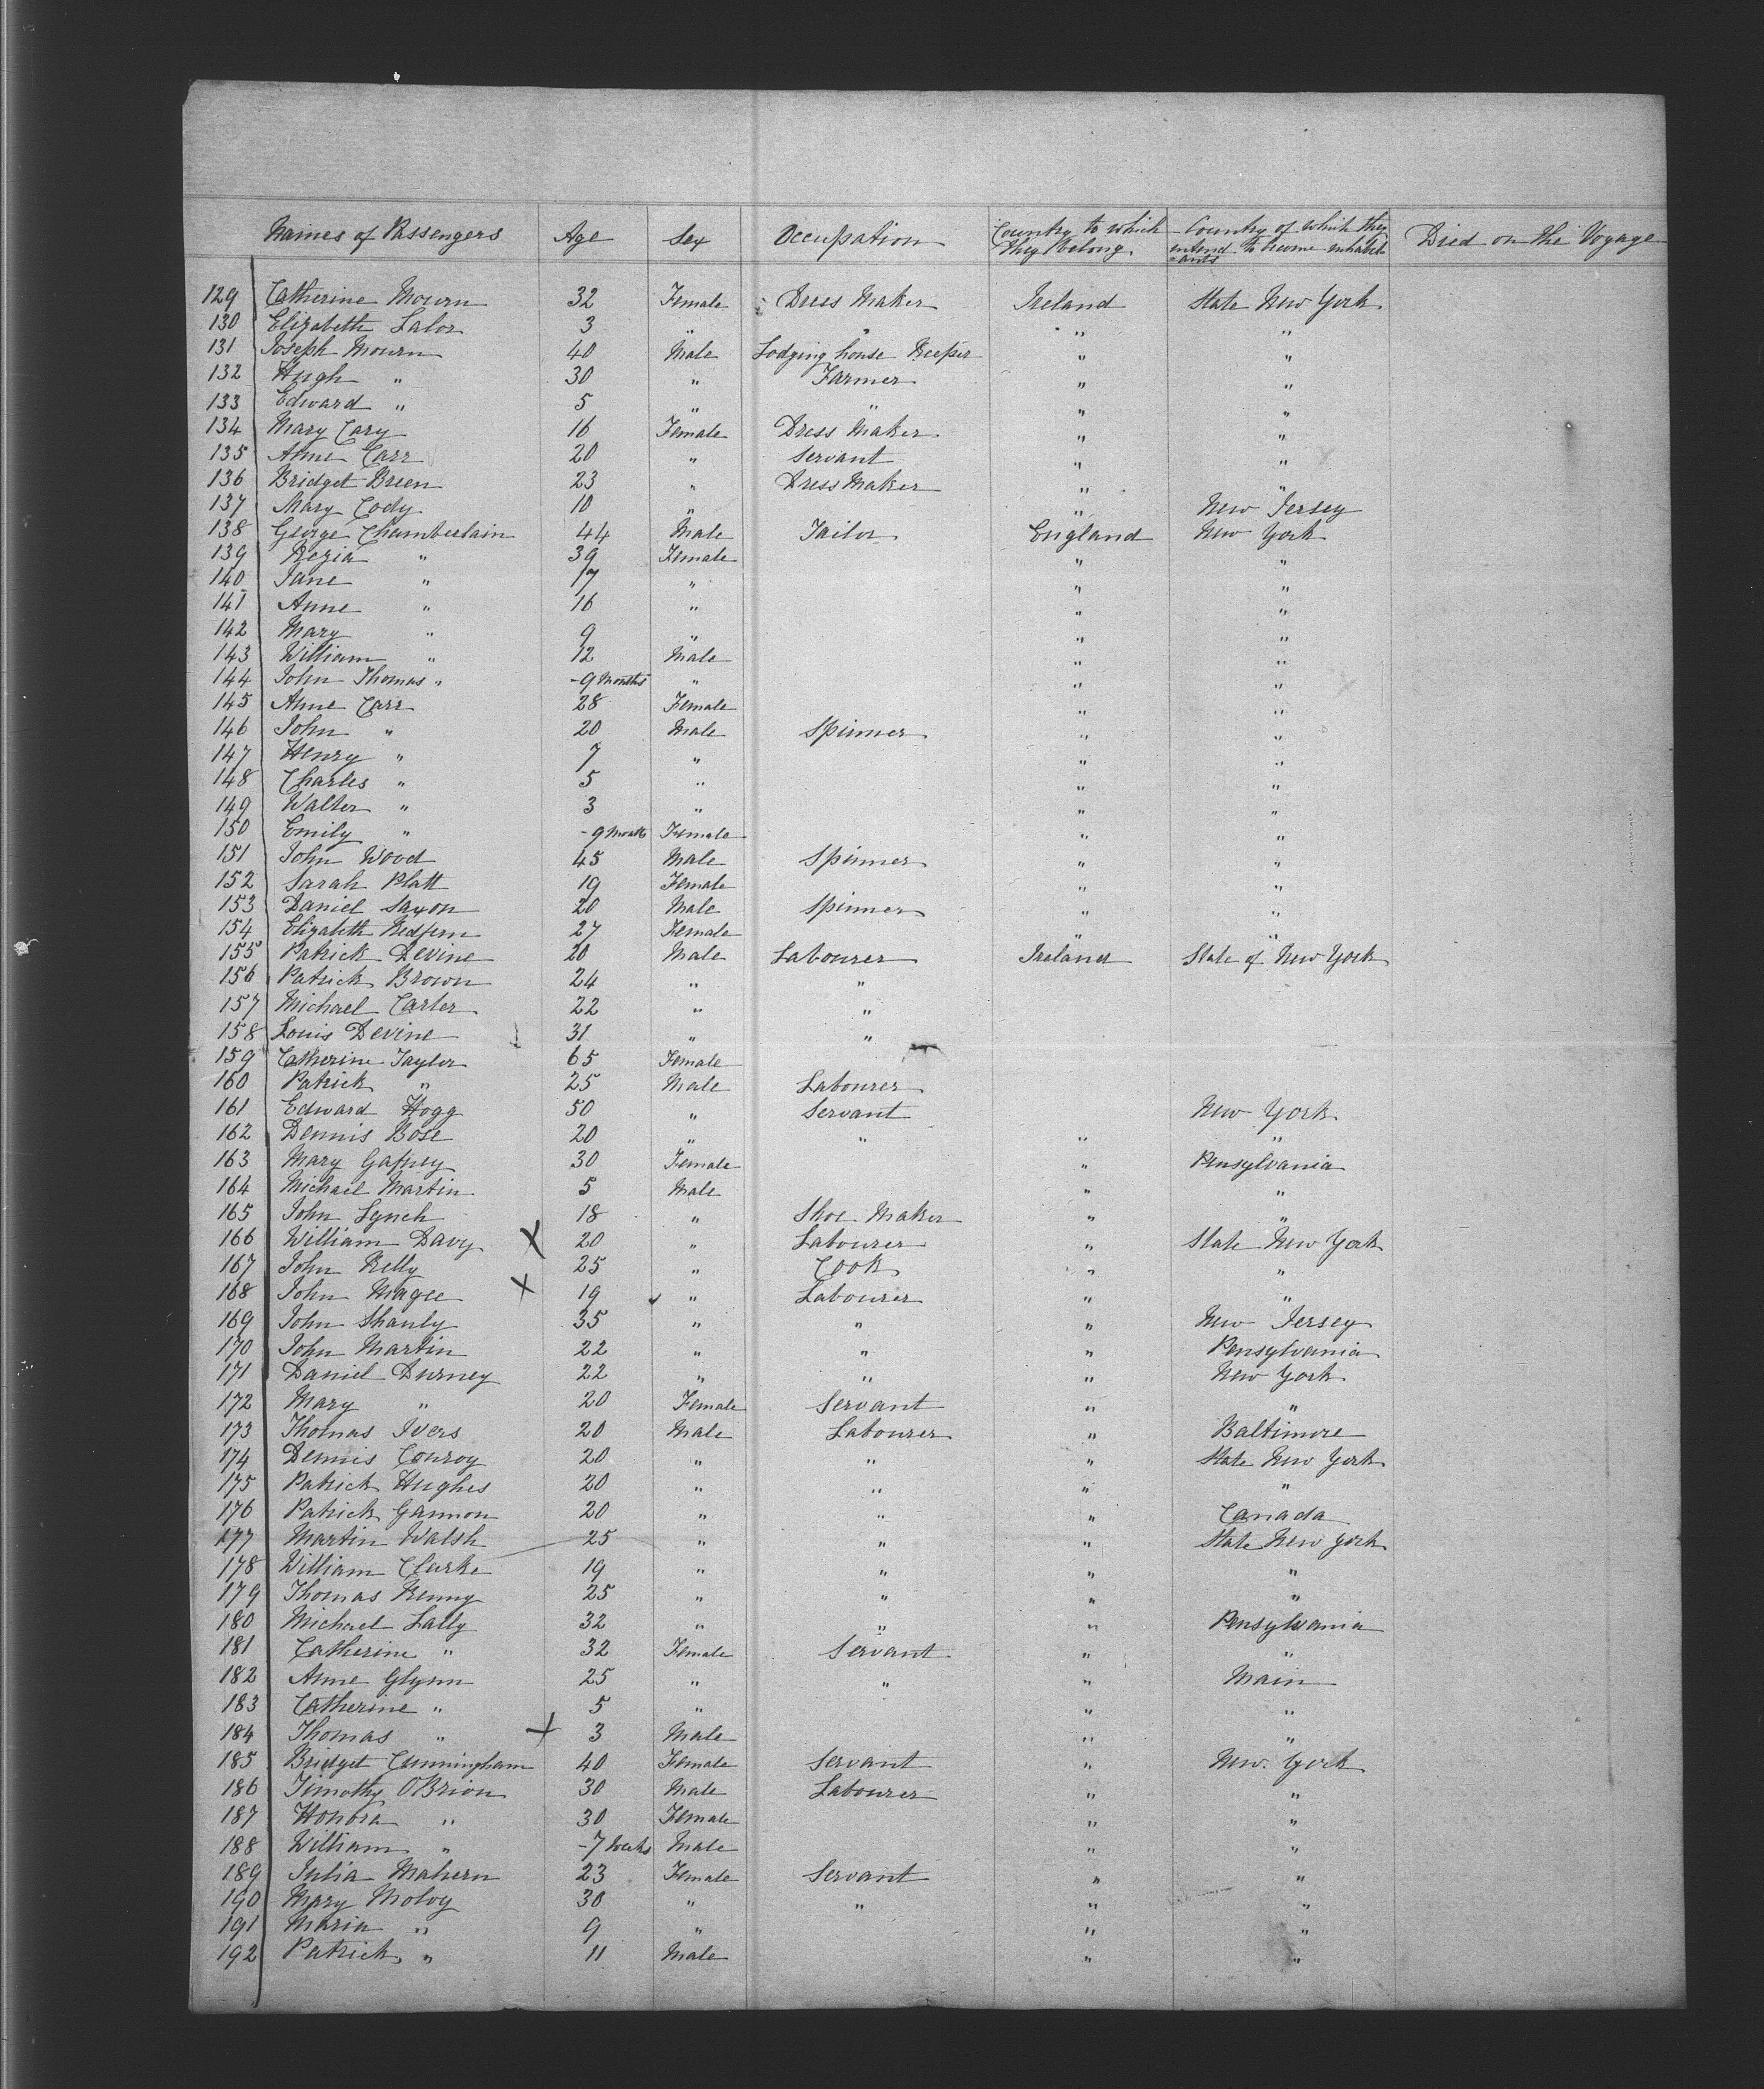 Names of Passengers Age Sex Occupation Country to which they belong Country of which they intend to become inhabitants Died on the Voyage
129 Catherine Mourn 32 Female Dress Maker Ireland State New York
130 Elizabeth Lalor 3 " " " "
131 Joseph Mourn 40 Male Lodging house Keeper " "
132 Hugh " 30 " Farmer " "
133 Edward " 5 " " " "
134 Mary Cary 16 Female Dress Maker " "
135 Anne Carr 20 " Servant " "
136 Bridget Breen 23 " Dress Maker " "
137 Mary Cody 10 " " New Jersey
138 George Chamberlain 44 Male Tailor England New York
139 Kezia " 39 Female " "
140 Jane " 17 " " "
141 Anne " 16 " " "
142 Mary " 9 " " "
143 William " 12 Male " "
144 John Thomas " - 9 Months " " "
145 Anne Carr 28 Female " "
146 John " 20 Male Spinner " "
147 Henry " 7 " " "
148 Charles " 5 " " "
149 Walter " 3 " " "
150 Emily " - 9 Months Female " "
151 John Wood 45 Male Spinner " "
152 Sarah Platt 19 Female " "
153 Daniel Saxon 20 Male Spinner " "
154 Elizabeth Redfern 27 Female " "
155 Patrick Devine 20 Male Labourer Ireland State of New York
156 Patrick Brown 24 " "
157 Michael Carter 22 " "
158 Louis Devine 31 " "
159 Catherine Taylor 65 Female
160 Patrick " 25 Male Labourer
161 Edward Hogg 50 " Servant New York
162 Dennis Bose 20 " " " "
163 Mary Gafney 30 Female " Pensylvania
164 Michael Martin 5 Male " "
165 John Lynch 18 " Shoe Maker " "
166 William Davy X 20 " Labourer " State New York
167 John Kelly 25 " Cook " "
168 John Magee X 19 " Labourer " "
169 John Shanly 35 " " " New Jersey
170 John Martin 22 " " " Pensylvania
171 Daniel Durney 22 " " " New York
172 Mary " 20 Female Servant " "
173 Thomas Ivers 20 Male Labourer " Baltimore
174 Dennis Conroy 20 " " " State New York
175 Patrick Hughes 20 " " " "
176 Patrick Gannon 20 " " " Canada
177 Martin Walsh 25 " " " State New York
178 William Clarke 19 " " " "
179 Thomas Kenny 25 " " " "
180 Michael Lally 32 " " " Pensylvania
181 Catherine " 32 Female Servant " "
182 Anne Glynn 25 " " " Main
183 Catherine " 5 " " "
184 Thomas " X 3 Male " "
185 Bridget Cunningham 40 Female Servant " New York
186 Timothy OBrion 30 Male Labourer " "
187 Honora " 30 Female " "
188 William " - 7 Weeks Male " "
189 Julia Mahern 23 Female Servant " "
190 Mary Moloy 30 " " " "
191 Maria " 9 " " "
192 Patrick " 11 Male " "